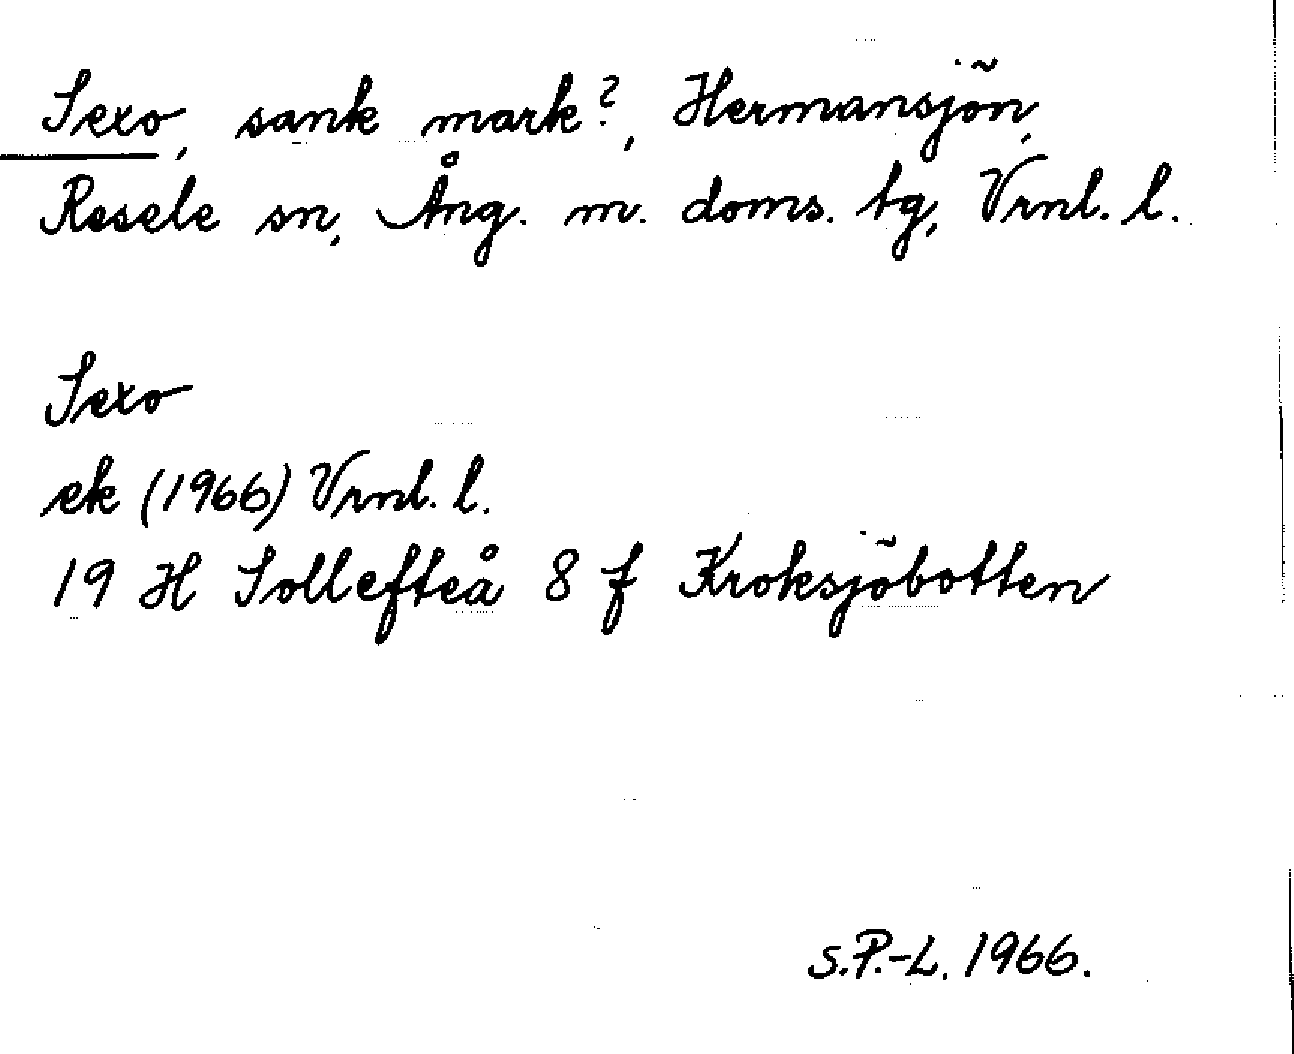 Sexo, sank mark?, Hermansjön,
Resele sn, Ång. m. doms. tg, Vrnl. l.
Sexo
ek (1966) Vrnl. l.
19 H Sollefteå 8 f Kroksjöbotten
S.P.-L. 1966.